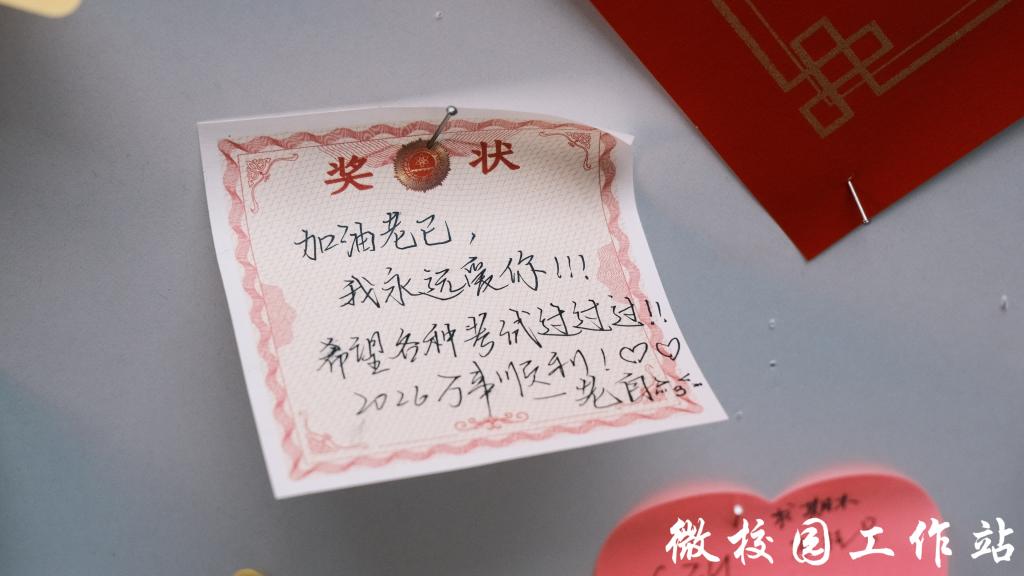 奖状
加油老己,
我永远爱你!!!
希望各种考试过过过!!
2026万事顺利!♡♡
—老自
求期末
微校园工作站